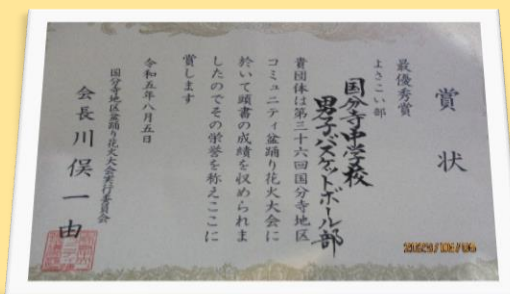 賞状
最優秀賞
よさこい部
国分寺中学校
男子バスケットボール部
貴団体は第三十六回国分寺地区
コミュニティ盆踊り花火大会に
於いて頭書の成績を収められま
したのでその栄誉を称えここに
賞します
令和五年八月五日
国分寺地区盆踊り花火大会実行委員会
会長川俣一由